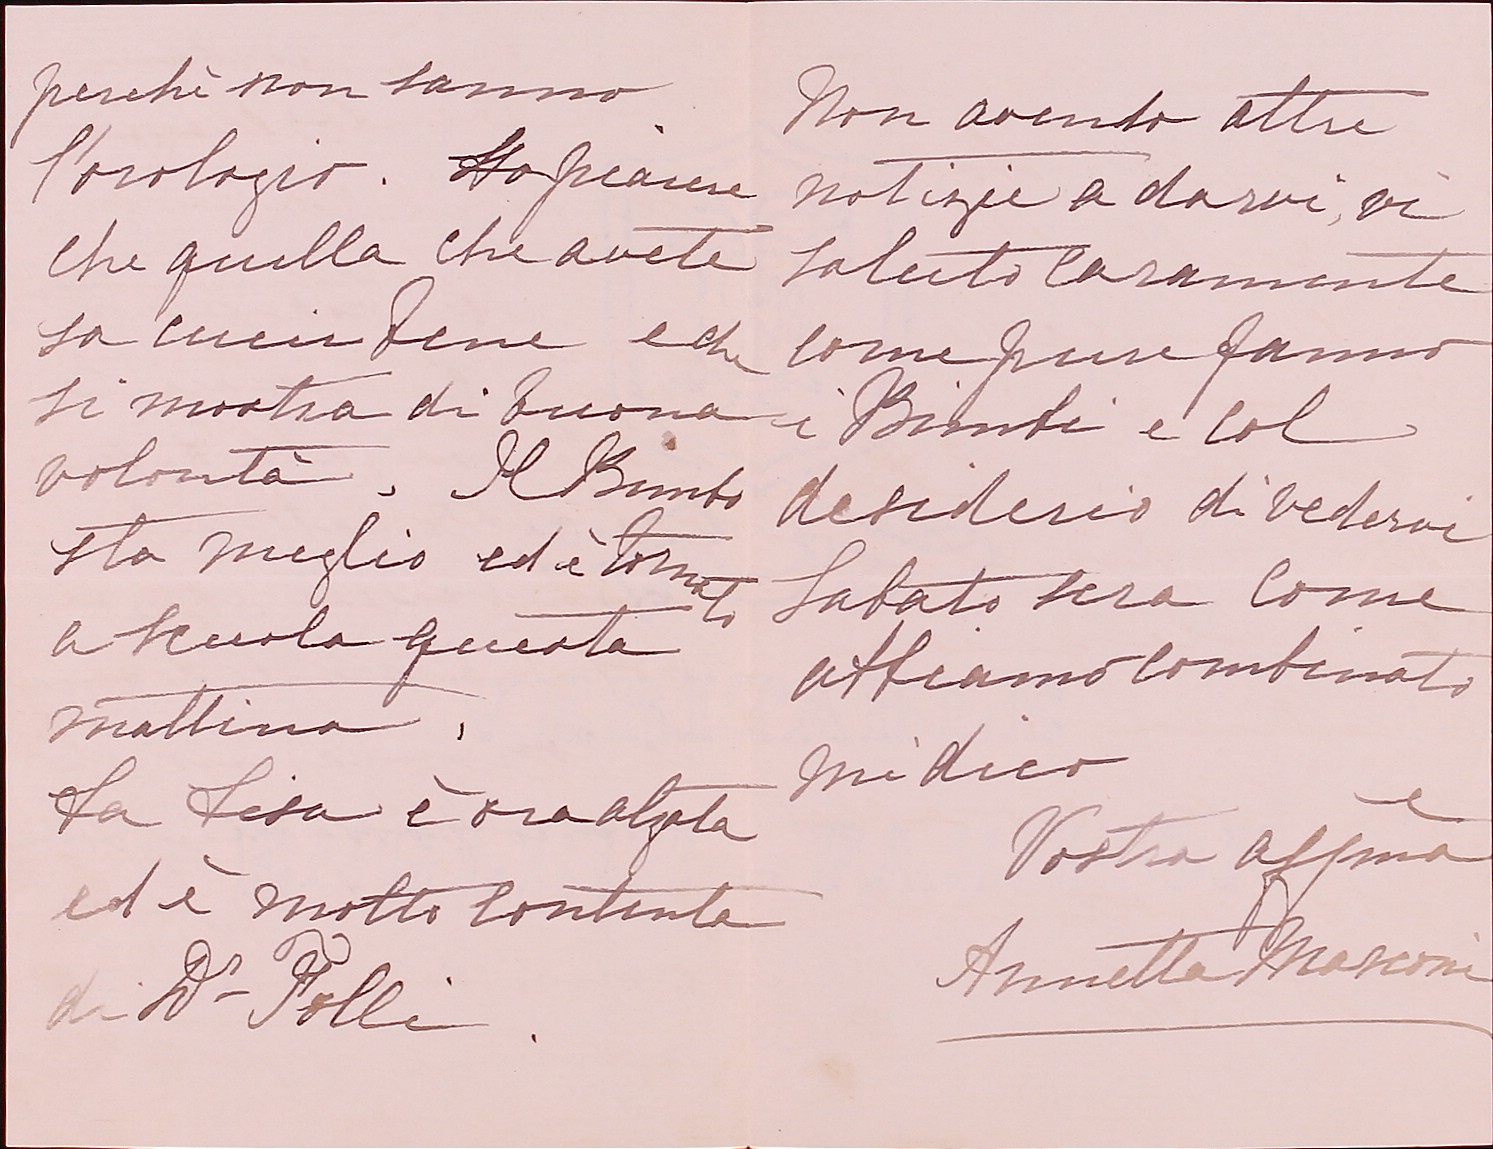 perchè non sanno
l'orologio. Ho piacere
che quella che avete
sa cucir bene e che
si mostra di buona
volontà. Il Bimbo
sta meglio ed è tornato
a scuola questa
mattina.
La Lisa è ora alzata
ed è molto contenta
di Dr Folli.
Non avendo altre
notizie a darvi, vi
saluto caramente
come pure fanno
i Bimbi e col
desiderio di vedervi
Sabato sera come
abbiamo combinato
mi dico
Vostra affma
Annetta Marconi